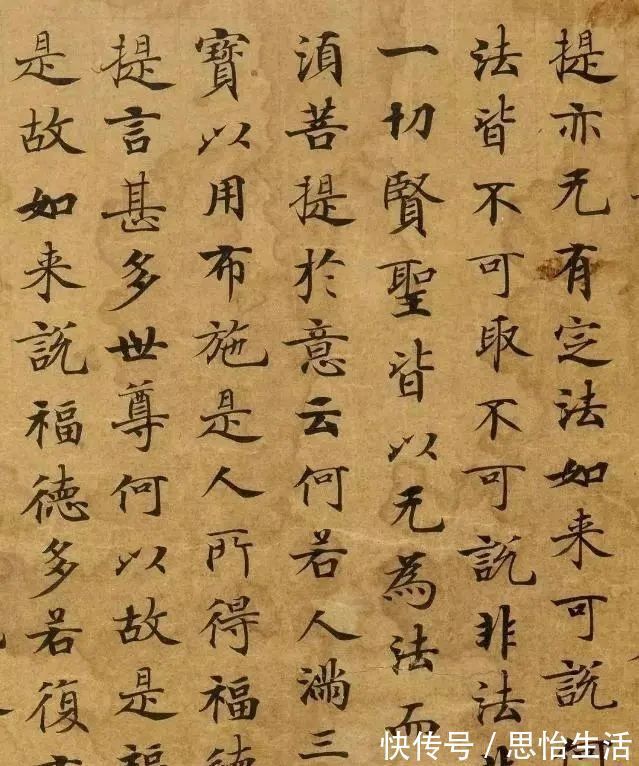 提亦无有定法如来可說
法皆不可取不可說非法
一切賢聖皆以无為法而
湏菩提於意云何若人滿三
寶以用布施是人所得福德
提言甚多世尊何以故是福
是故如来說福德多若復
快传号／思怡生活